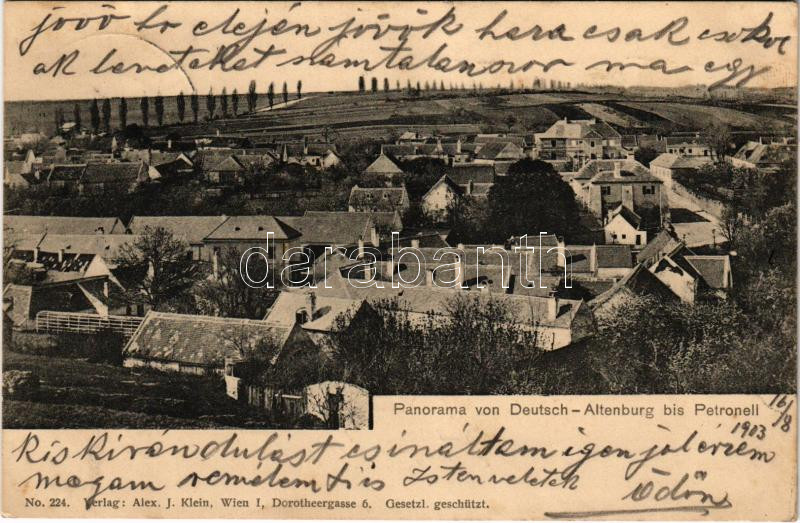 jövő hó elején jövök haza csak csókol
ak leveteket
ma egy
darabanth
Panorama von Deutsch-Altenburg bis Petronell
16/8
1903
Kis kirándulást csináltam igen jól érzem
magam remélem ti is Istenveletek
Ödön
No. 224. Verlag: Alex. J. Klein, Wien I, Dorotheergasse 6. Gesetzl. geschützt.